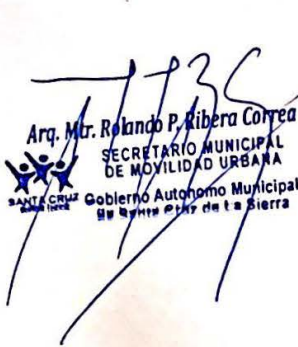 Arq. Mtr. Rolando P. Ribera Correa
SECRETARIO MUNICIPAL
DE MOVILIDAD URBANA
SANTA CRUZ
Gobierno Autónomo Municipal
de Santa Cruz de La Sierra